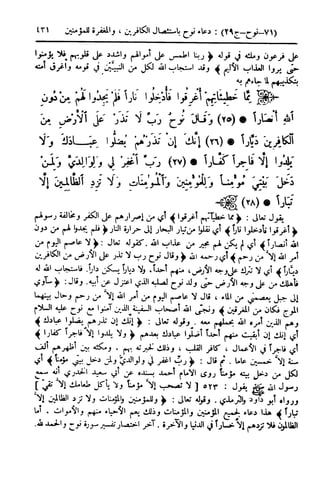 (٧١ــنوح ــ ج٢٩) : دعاء نوح باستئصال الكافرين ، والمغفرة للمؤمنين ٤٣١
على فرعون وملئه في قوله ﴿ ربنا اطمس على أموالهم واشدد على قلوبهم فلا يؤمنوا
حتى يروا العذاب الأليم ﴾ وقد استجاب الله لكل من النبيين في قومه وأغرق أمته
بتكذيبهم لما جاءهم به
﴿ مِمَّا خَطِيئَاتِهِمْ أُغْرِقُوا فَأُدْخِلُوا نَاراً فَلَمْ يَجِدُوا لَهُمْ مِنْ دُونِ
اللهِ أَنْصَاراً ﴾ (٢٥) ﴿ وَقَالَ نُوحٌ رَبِّ لَا تَذَرْ عَلَى الْأَرْضِ مِنَ
الْكَافِرِينَ دَيَّاراً ﴾ (٢٦) ﴿ إِنَّكَ إِنْ تَذَرْهُمْ يُضِلُّوا عِبَادَكَ وَلَا
يَلِدُوا إِلَّا فَاجِراً كَفَّاراً ﴾ (٢٧) ﴿ رَبِّ اغْفِرْ لِي وَلِوَالِدَيَّ وَلِمَنْ
دَخَلَ بَيْتِيَ مُؤْمِناً وَلِلْمُؤْمِنِينَ وَالْمُؤْمِنَاتِ وَلَا تَزِدِ الظَّالِمِينَ إِلَّا
تَبَاراً ﴾ (٢٨)
يقول تعالى : ﴿ مما خطيآتهم أغرقوا ﴾ أي من إصرارهم على الكفر ومخالفة رسولهم
﴿ أغرقوا فأدخلوا ناراً ﴾ أي نقلوا من تيار البحار إلى حرارة النار ﴿ فلم يجدوا لهم من دون
الله أنصاراً ﴾ أي لم يكن لهم مجير من عذاب الله . كقوله تعالى : ﴿ لا عاصم اليوم من
أمر الله إلا من رحم ﴾ أي رحمه الله ﴿ وقال نوح رب لا تذر على الأرض من الكافرين
دياراً ﴾ أي لا تترك على وجه الأرض، منهم أحداً، ولا دياراً يسكن داراً. فاستجاب الله له
فأهلك من على وجه الأرض حتى ولد نوح لصلبه الذي اعتزل عن أبيه. وقال: ﴿ سآوي
إلى جبل يعصمني من الماء، قال لا عاصم اليوم من أمر الله إلا من رحم وحال بينهما
الموج فكان من المغرقين ﴾ ونجى الله أصحاب السفينة الذين آمنوا مع نوح عليه السلام
وهم الذين أمره الله بحملهم معه. وقوله تعالى : ﴿ إنك إن تذرهم يضلوا عبادك ﴾
أي إنك إن أبقيت منهم أحداً أضلوا عبادك بعدهم ﴿ ولا يلدوا إلا فاجراً كفاراً ﴾
أي فاجراً في الأعمال ، كافر القلب ، وذلك لخبرته بهم ، ومكثه بين أظهرهم ألف
سنة إلا خمسين عاما . ثم قال : ﴿ رب اغفر لي ولوالدي ولمن دخل بيتي مؤمناً ﴾ أي
لكل من دخل بيته مؤمناً روى الامام أحمد بسنده عن أبي سعيد الخدري أنه سمع
رسول الله ﷺ يقول : ٥٢٣ [ لا تصحب إلا مؤمناً ولا يأكل طعامك إلا تقي ]
ورواه أبو داود والترمذي . وقوله تعالى : ﴿ وللمؤمنين والمؤمنات ولا تزد الظالمين إلا
تباراً ﴾ هذا دعاء لجميع المؤمنين والمؤمنات وذلك يعم الأحياء منهم والأموات . أما
الظالمون فلا تزدهم إلا خساراً في الدنيا والآخرة . آخر اختصار تفسير سورة نوح والحمد لله.